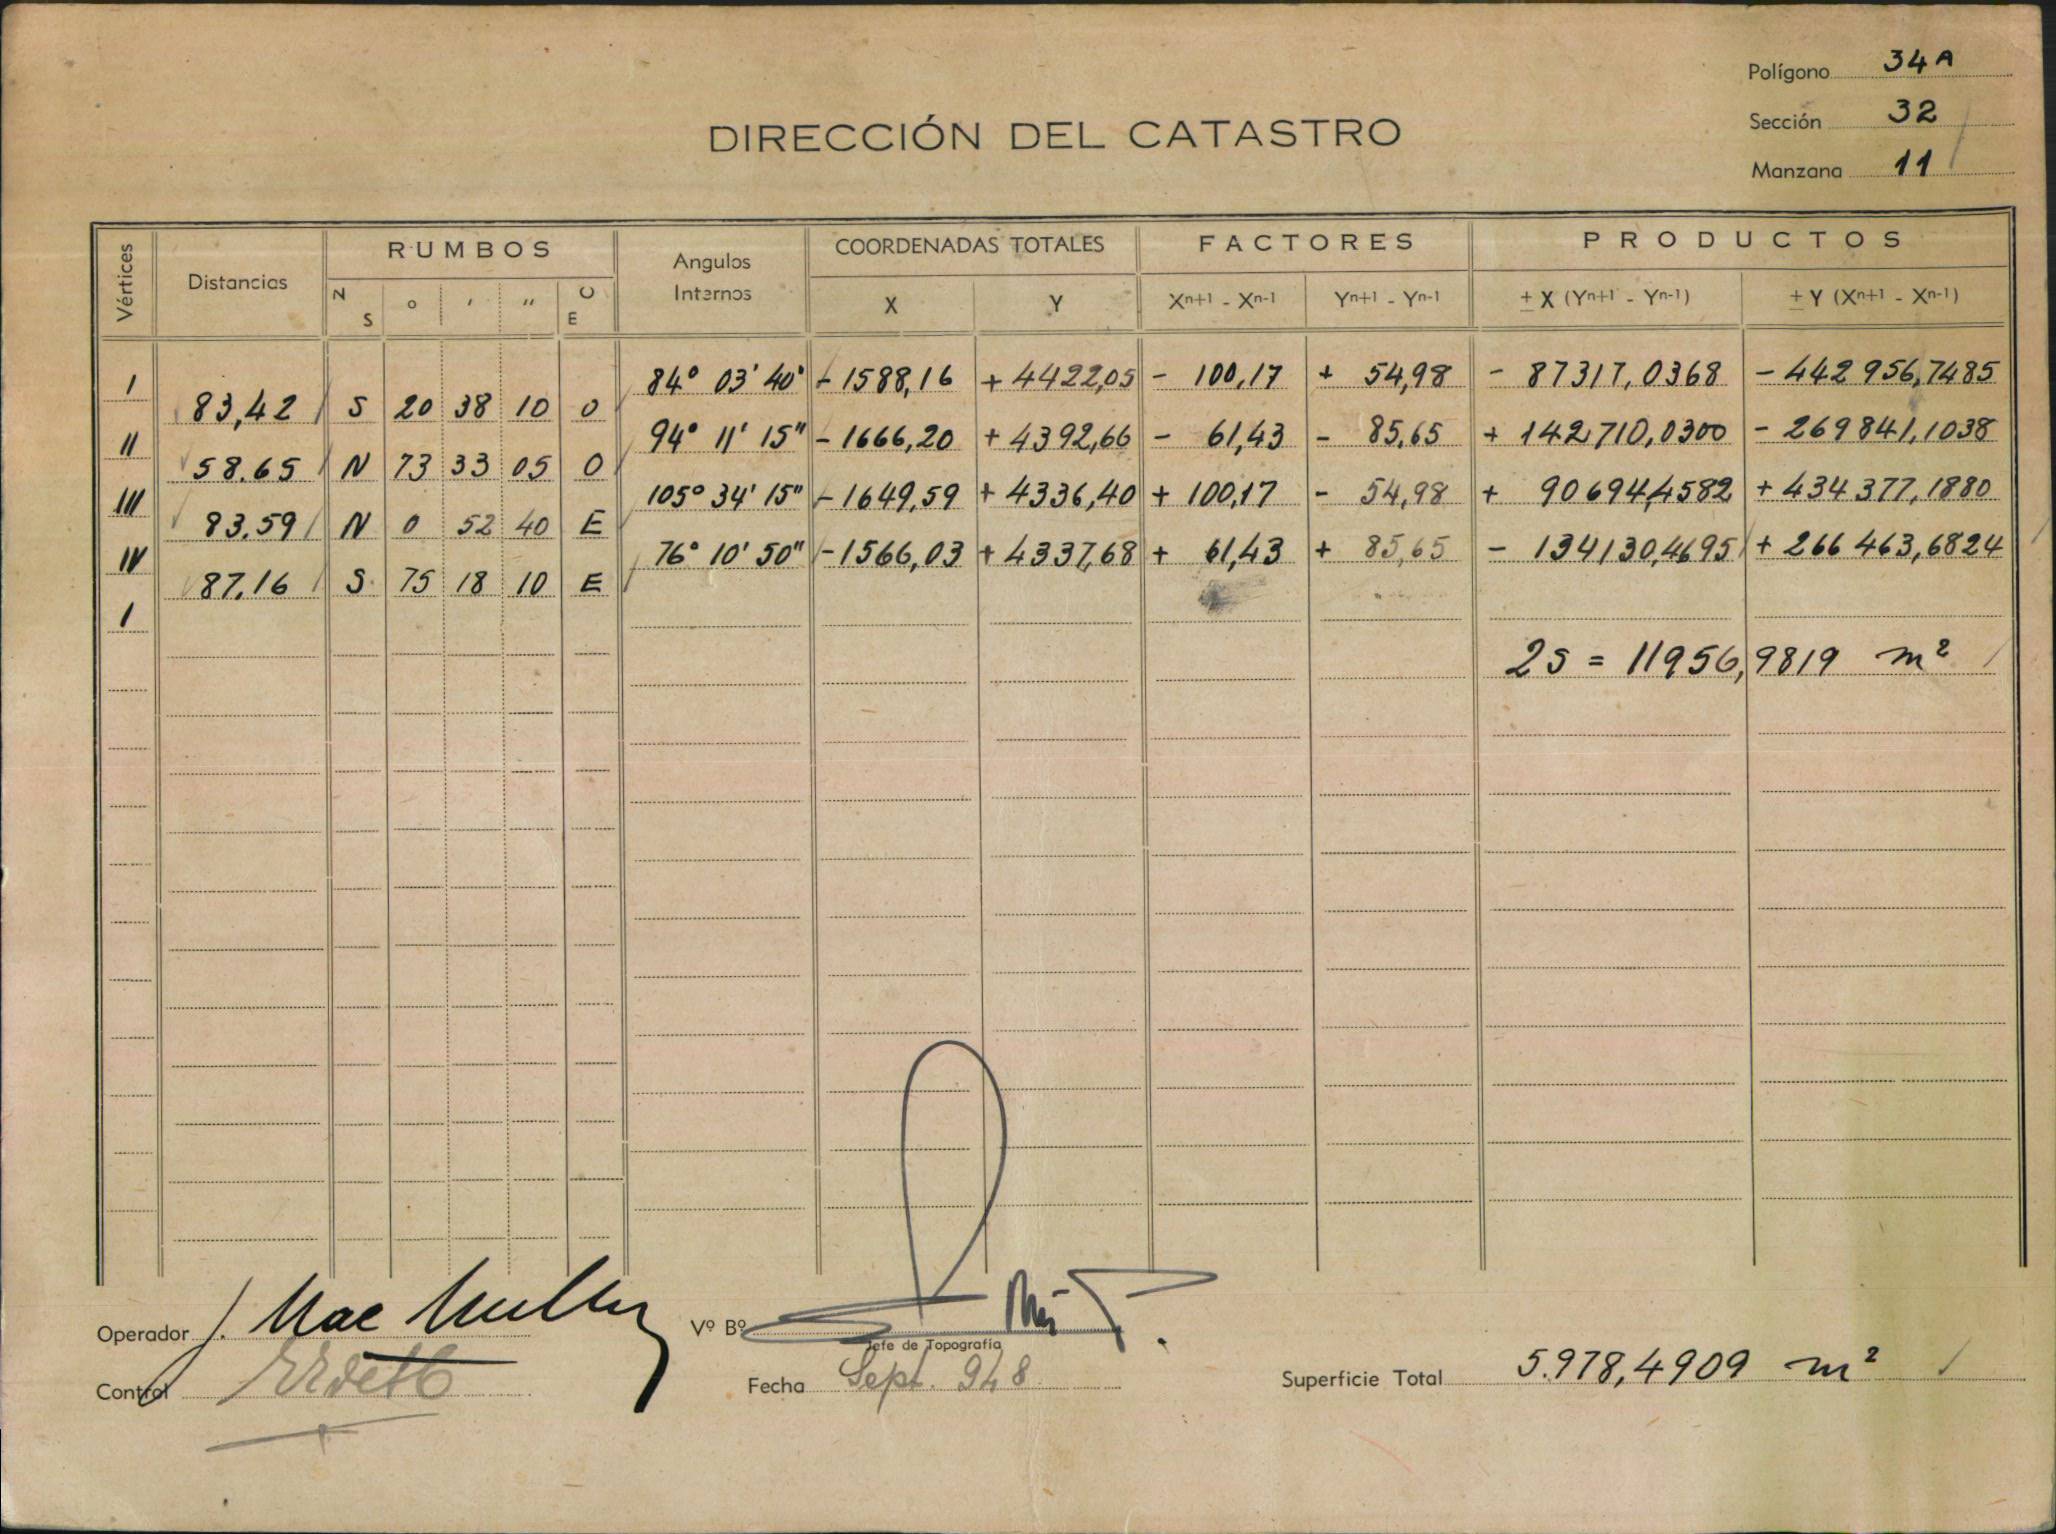 Polígono 34 A
Sección 32
Manzana 11
DIRECCIÓN DEL CATASTRO
Vértices Distancias RUMBOS Angulos Internos COORDENADAS TOTALES FACTORES PRODUCTOS
N S ° ' " O E X Y Xn+1 - Xn-1 Yn+1 - Yn-1 ± X (Yn+1 - Yn-1) ± Y (Xn+1 - Xn-1)
I 84° 03' 40" - 1588,16 + 4422,05 - 100,17 + 54,98 - 87317,0368 - 442 956,7485
83,42 S 20 38 10 O
II 94° 11' 15" - 1666,20 + 4392,66 - 61,43 - 85,65 + 142710,0300 - 269841,1038
58.65 N 73 33 05 O
III 105° 34' 15" - 1649,59 + 4336,40 + 100,17 - 54,98 + 90694,4582 + 434377,1880
83.59 N 0 52 40 E
IV 76° 10' 50" - 1566,03 + 4337,68 + 61,43 + 85,65 - 134130,4695 + 266 463,6824
87.16 S 75 18 10 E
I
2S = 11956,9819 m²
Operador J. Mac Vº Bº
Jefe de Topografía
Control Fecha Sept. 948 Superficie Total 5.978,4909 m²